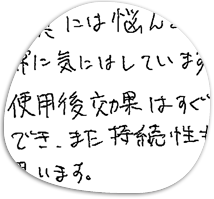 には悩ん
に気にはしています
使用後効果はすぐ
でき、また持続性も
思います。